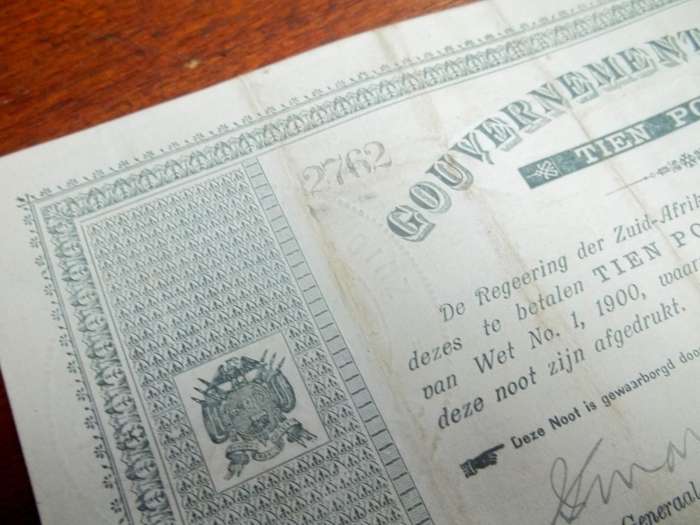 2762
GOUVERNEMENT
TIEN
De Regeering der Zuid-Afrik
dezes te betalen TIEN PO
van Wet No. 1, 1900, waar
deze noot zijn afgedrukt.
Deze Noot is gewaarborgd door
Generaal